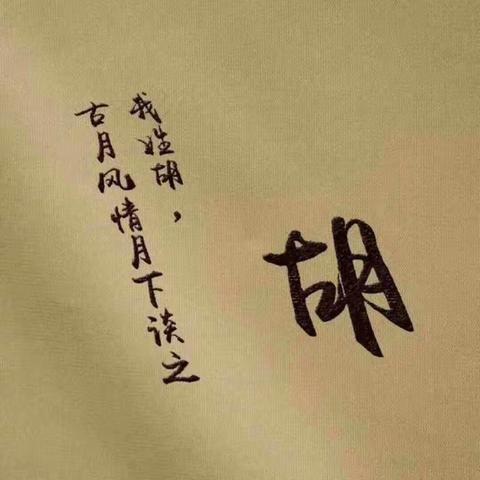 胡
我姓胡，
古月风情月下谈之